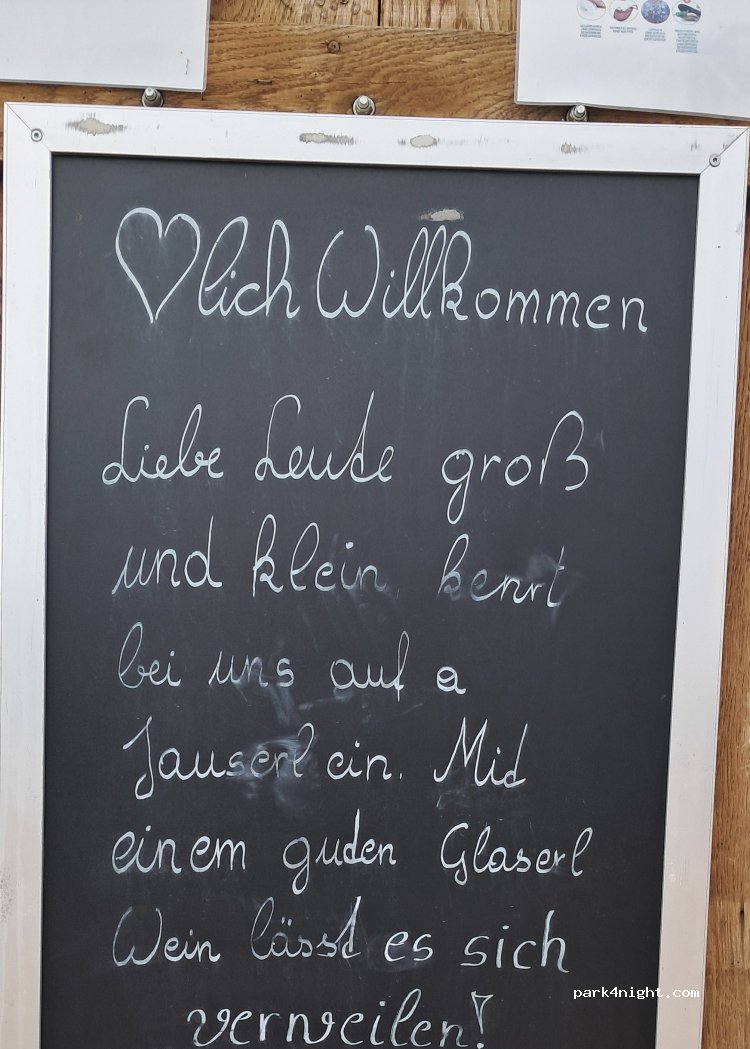 ♡lich Willkommen
Liebe Leute groß
und klein, kehrt
bei uns auf a
Jauserl ein. Mit
einem guten Glaserl
Wein lässt es sich
verweilen!
park4night.com